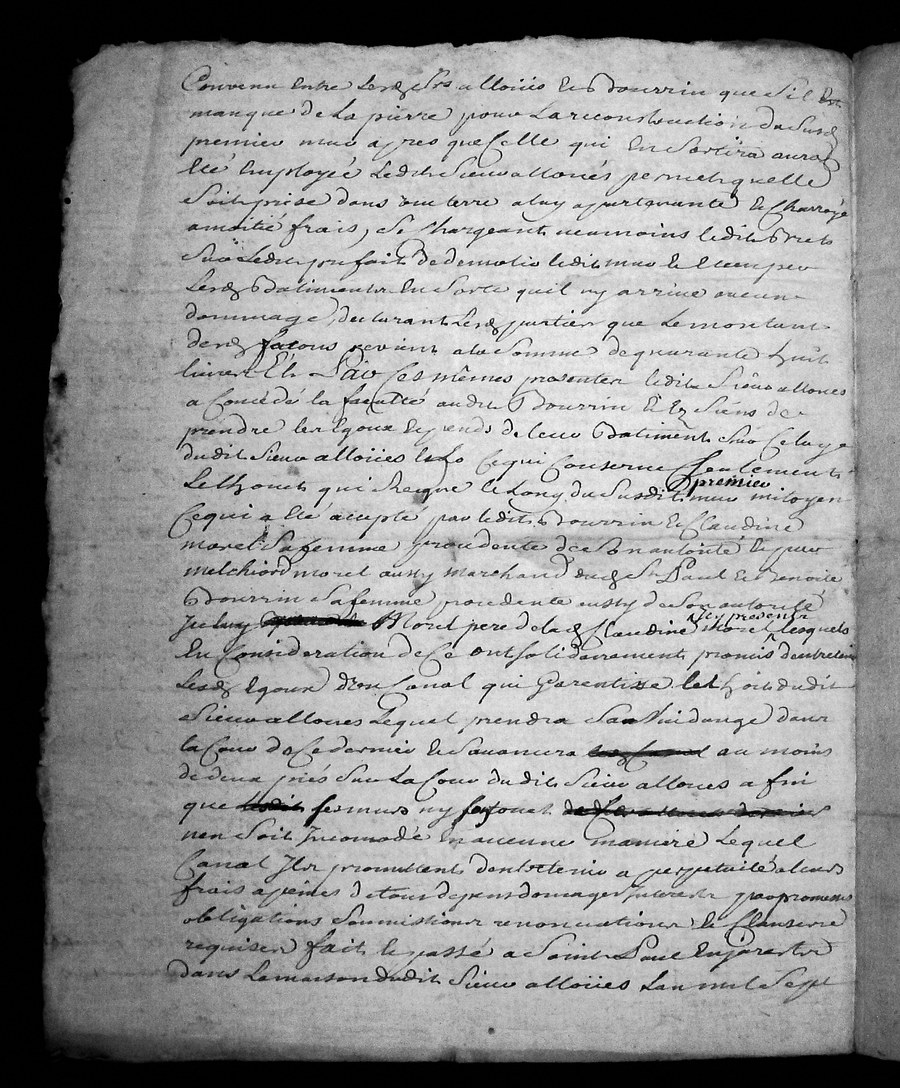 Convenu Entre Lesd Srs alloües Et Dourrin que Sil Est
manque de La pierre pour La reconstruction du Susd
premier mur apres que Celle qui En Sortira aura
Eté Employée Ledit Sieur alloües permet quelle
Soit prise dans une terre a luy apartenante Et Charroyé
a moitié frais, Se Chargeant neamoins ledit
Sur Ledit prix fait de demolir ledit mur Et
Lesd Batiments En Sorte quil ny arrive aucun
dommage, declarant Lesd parties que Le montant
desd façons revient a la Somme de quarante huit
livres Et Par Ces mêmes presentes ledit Siêur alloües
a Concédé la faculté audit Dourrin Et Ez Siéns de
prendre les Egoux En pends de leur Batiment Sur Celuy
dudit Sieur alloües Et Ce qui Concerne Seulement
Le qui Reigne Le Long du Susdit premier mur mitoyen
Ce qui a Eté acepté par ledit Dourrin Et Claudine
morel Sa femme procedente de Son autorité Et par
melchiord morel aussy marchand dud St Paul Et Benoite
Dourrin Sa femme procedente aussy de Son autorité
Iceluy Morel pere de lad Claudine morel Icy presents lesquels
En Consideration de Ce ont Solidairement promis dentretenir
Lesd Egoux dun Canal qui Garentisse le toit dudit
Sieur alloües Lequel prendra Sa Vuidange dans
la Cour de Ce dernier Et Savancera au moins
de deux piés Sur La Cour dudit Sieur alloües a fin
que ses murs ny
nen Soit Incomodé En aucune maniere Lequel
Canal Ils promettent dentretenir a perpetuité a leurs
frais a peines de tous depens domages Interets par promesses
obligations Soumissions renonciations Et Clauses
requises fait Et passé a Saint Paul En Jarest
dans La maison dudit Sieur alloües Lan mil Sept